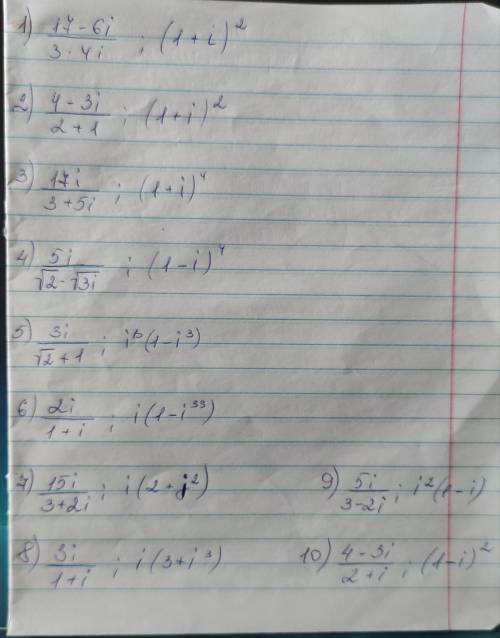 1) (17-6i)/(3·4i) ; (1+i)²
2) (4-3i)/(2+1) ; (1+i)²
3) 17i/(3+5i) ; (1+i)⁴
4) 5i/(√2-√3i) ; (1-i)⁴
5) 3i/(√2+1) ; (1-i³)
6) 2i/(1+i) ; i(1-i³³)
7) 15i/(3+2i) ; i(2+i²)
9) 5i/(3-2i) ; i²(1-i)
8) 3i/(1+i) ; i(3+i³)
10) (4-3i)/(2+i) ; (1-i)²